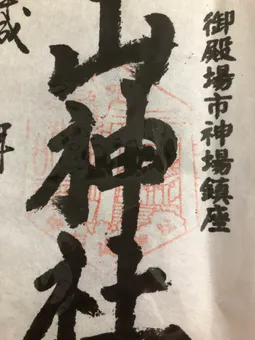 御殿場市神場鎮座
山神社
歳
拝